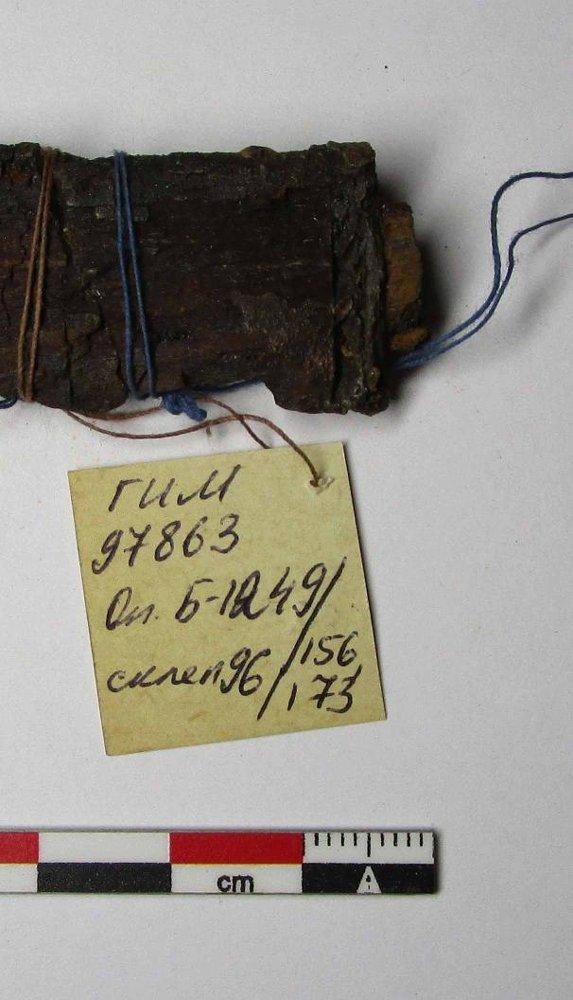 ГИМ
97863
Оп. Б-1249/
156
склеп96/173
cm
A